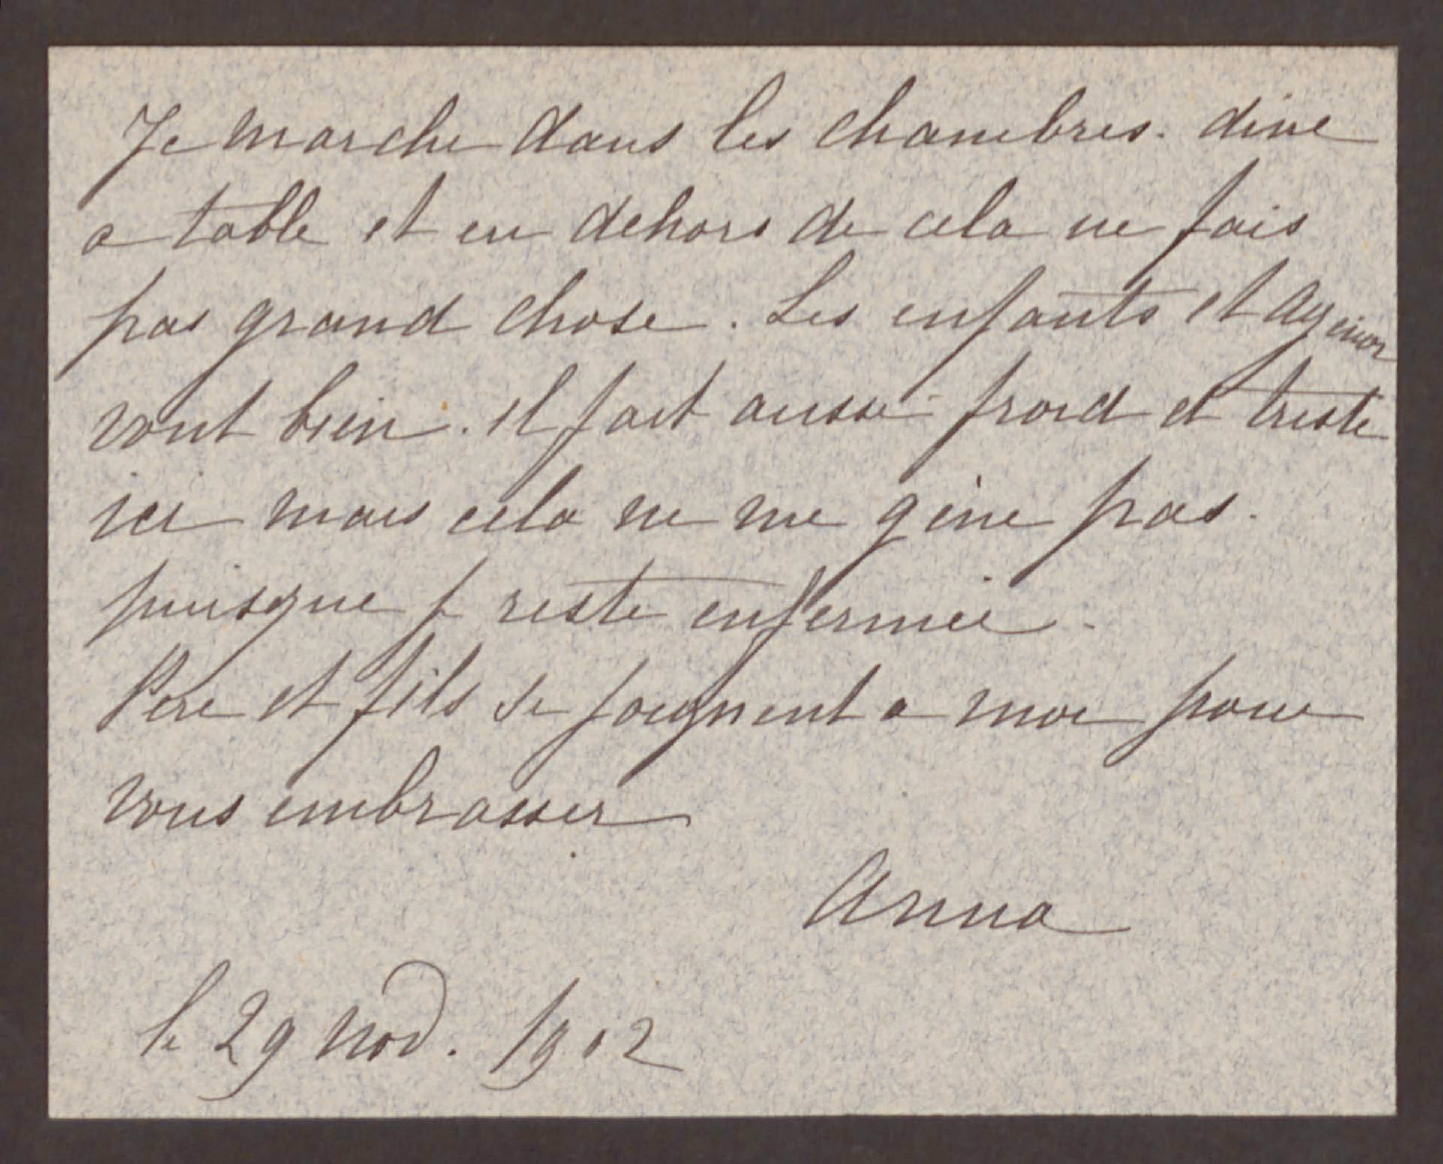 Je marche dans les chambres. dine
a table et en dehors de cela ne fais
pas grand chose. Les enfants et Agénor
vont bien. il fait aussi froid et triste
ici mais cela ne me gène pas.
puisque je reste enfermée.
Père et fils se joignent a moi pour
vous embrasser
Anna
le 29 nov. 1902